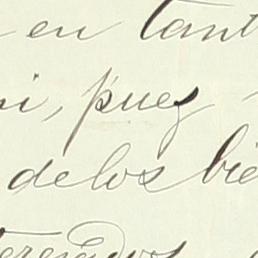 en tant
ni, pues
de los bie
teresados